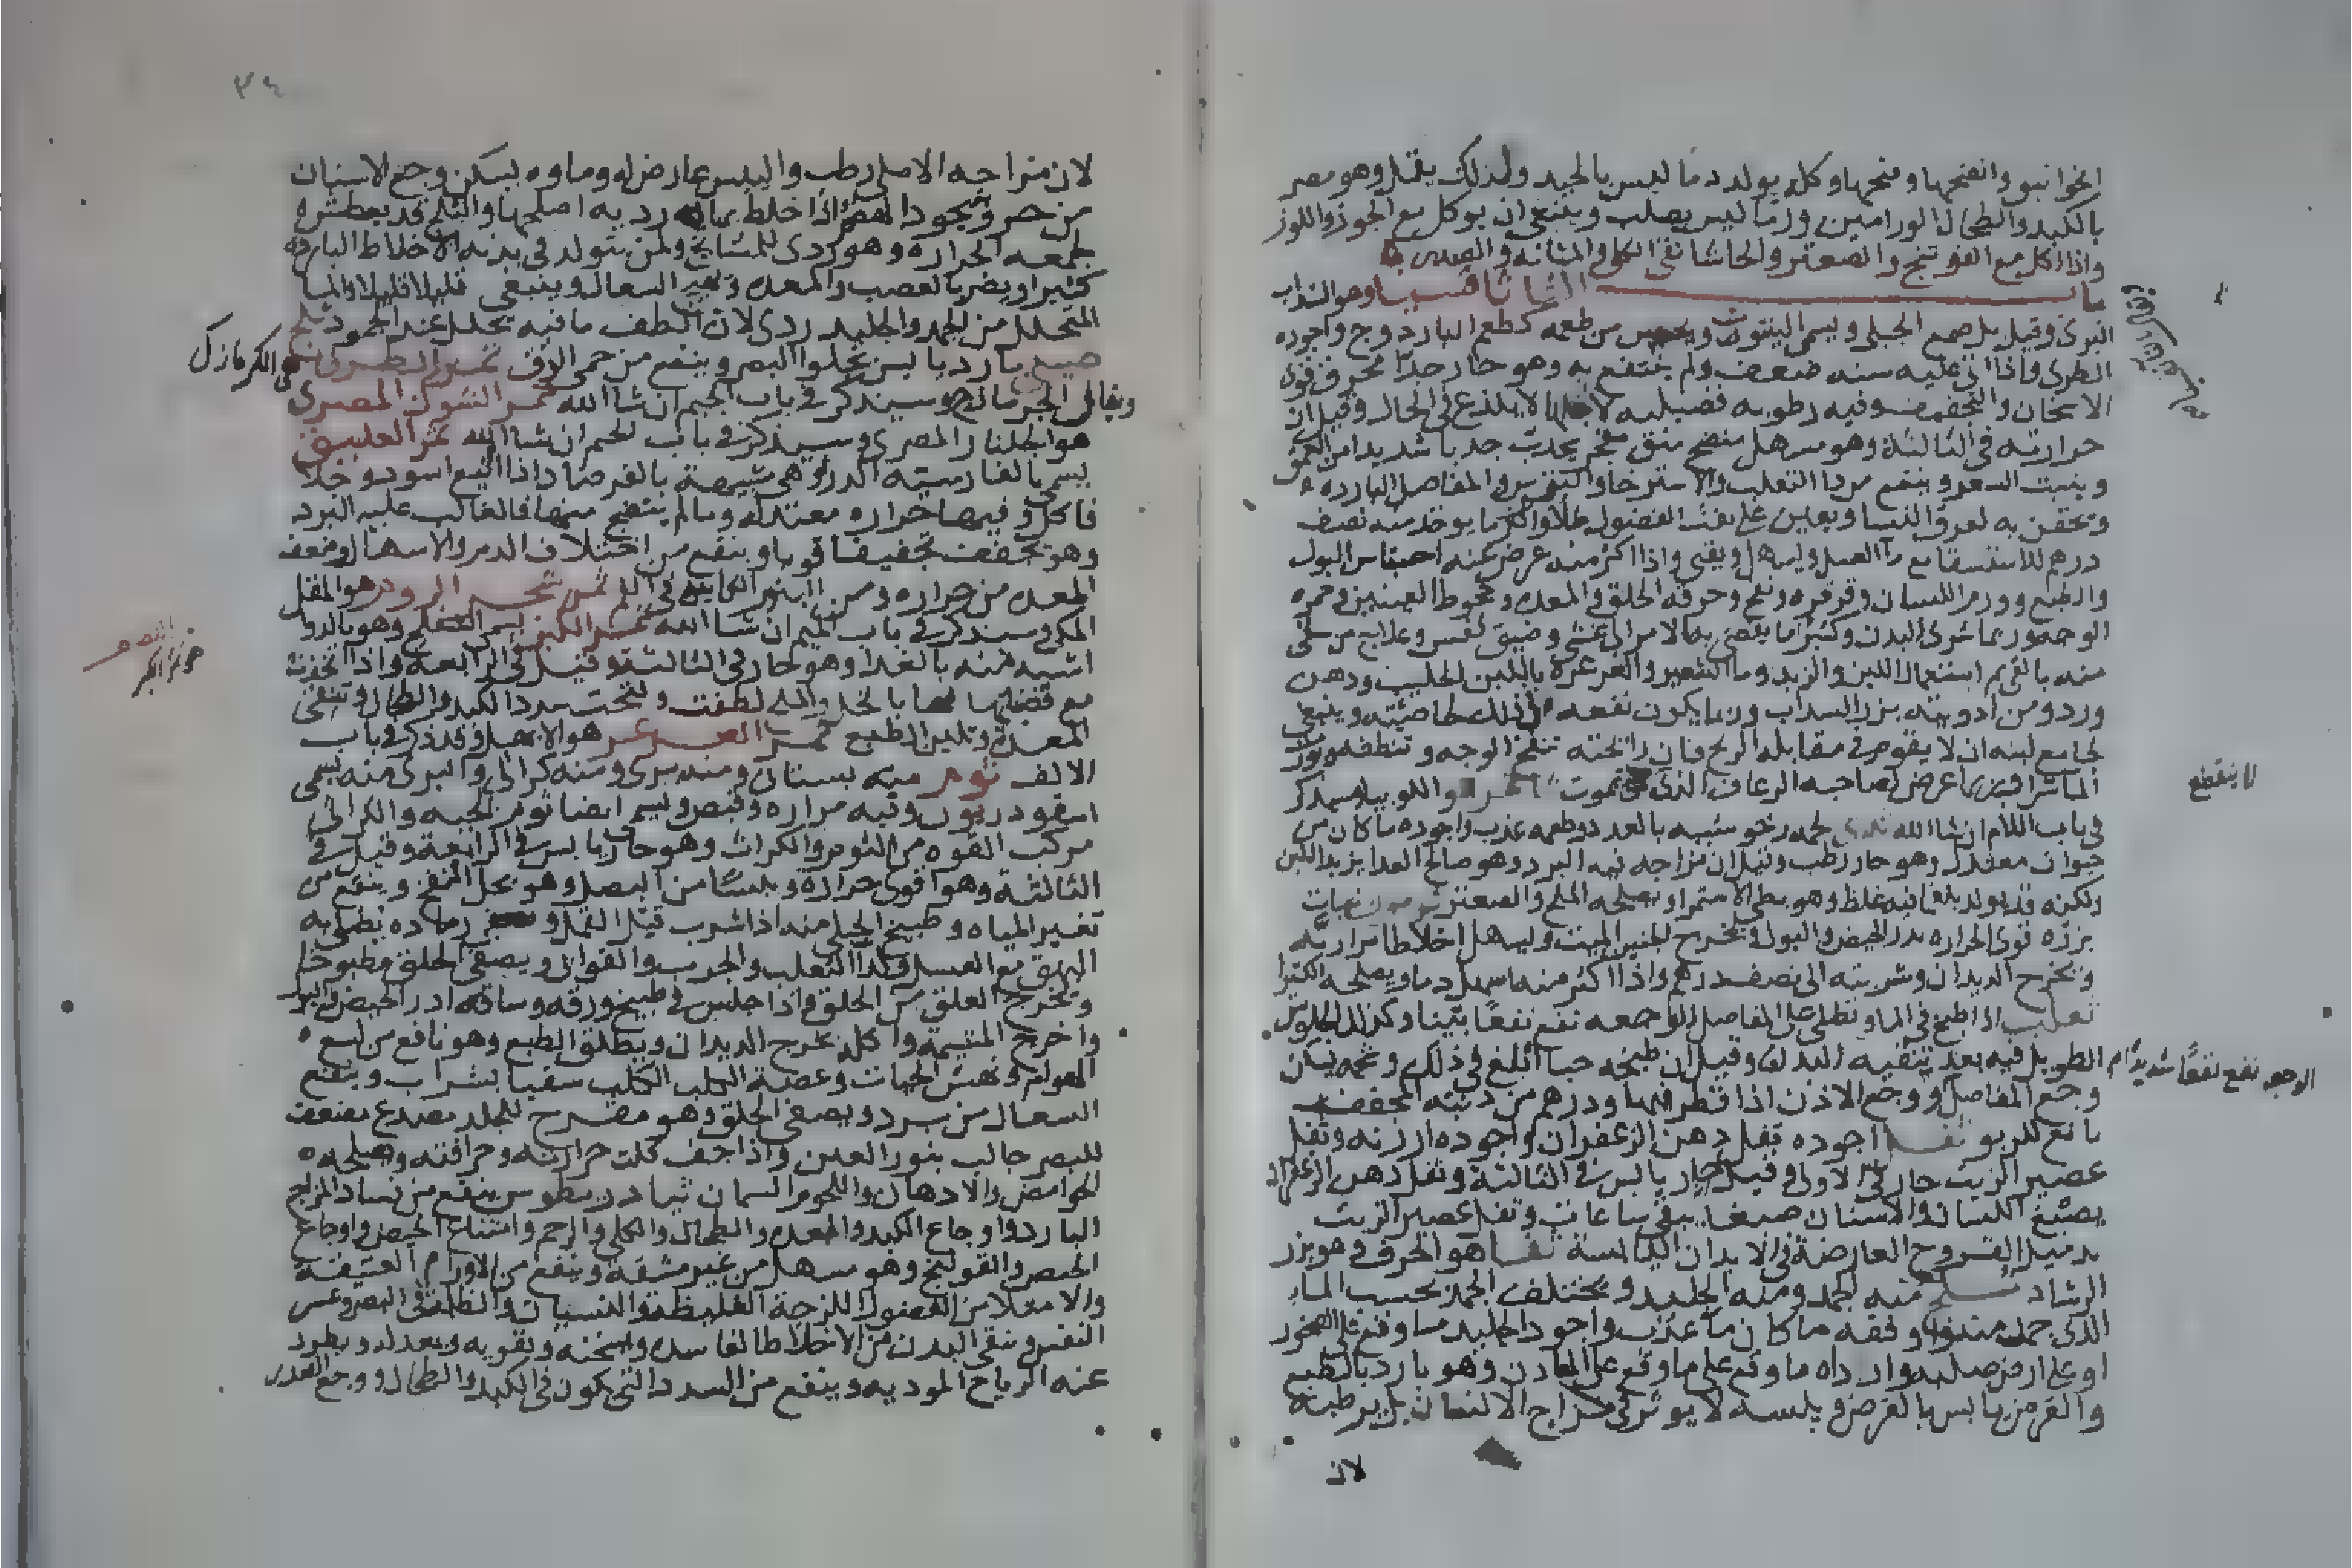 الخوانيو وانضجها وفتحها وكله يولد دما ليس بالجيد ولذلك يقتل وهو مضر
بالكبد والطحال الوارمين ودما ليس يصلب وينبغي ان يوكل مع الجوز واللوز
واذا اكل مع الفوتنج والصعتر والحاشا نقى الكلى والمثانه والصدر
باب الثا ثافسيا وهو السذاب
البرى وقيل بل صمغ الجبلى ويسمى الينتون من طعمه كطعم البارد وج واجوده
الطرى واذا اتى عليه سنه ضعف ولم ينتفع به وهو حار جدا محرق قوى
الاسخان والتجفيف وفيه رطوبه فضليه لا يلذع في الحال وقيل ان
حرارته في الثالثة وهو مسهل منضج منق مفجر يجذب جذبا شديدا من العمق
وينبت الشعر وينفع من دا الثعلب والاسترخا والنقرس والمفاصل البارده
وتحقن به لعرق النسا ويعين على نفث الفضول طلا واكثر ما يوخذ منه نصف
درهم للاستسقا مع ما العسل ويسهل ويقى واذا اكثر منه عرض عنه احتباس البول
والطبع وورم اللسان وقرقره ونفخ وحرقه الحلق والمعده وجحوظ العينين وحمره
الوجه وربما شرى البدن وكثيرا ما يفضى به الامر الى غشى وضيق نفس وعلاج من سقى
منه بالقى ثم استعمال اللبن والزبد وما الشعير والغرغرة باللبن الحليب ودهن
ورد ومن ادويته بزر السداب وربما يكون نفعه في ذلك لخاصيته وينبغي
لجامع لبنه ان لا يقوم في مقابله الريح فان رائحته تنفخ الوجه وتنطفه وتورث
الماشرا وربما عرض لصاحبه الرعاف الذى يموت واللوبيا وسيذكر
لا ينقطع
في باب اللام ان شا الله لحمه رخو شبيه بالغدد وطعمه عذب واجوده ما كان من
حيوان معتدل وهو حار رطب وقيل ان مزاجه فيه البرد وهو صالح الغدا يزيد اللبن
ولكنه قد يولد بلغما فيه غلظ وهو بطى الاستمرا ويصلحه الملح والصعتر ثومون نبات
بزره قوى الحراره يدر الحيض والبول ويخرج الجنين الميت ويسهل اخلاطا مراريه
ويخرج الديدان وشربته الى نصف درهم واذا اكثر منه اسهل دما ويصلحه الكثيرا
ثعلب اذا طبخ في الما وتطلى على المفاصل الوجعه نفع نفعا بينا وكذلك الجلوس
الطويل فيه بعد تنقيه البدن وقيل ان طبيخه حيا ابلغ في ذلك وشحمه يسكن
الوجعه نفع نفعا شديدا م
وجع المفاصل ووجع الاذن اذا قطر فيها ودرهم من رئته المجففه
نافع للربو ثفل اجوده ثفل دهن الزعفران واجوده ارزنه وثفل
عصير الزيت حار في الاولى وقيل حار يابس في الثالثة وثفل دهن الزعفران
يصبغ اللسان والاسنان صبغا يبقى ساعات وثفل عصير الزيت
يدمل القروح العارضة في الابدان اليابسة ثفا هو الحرف وهو بزر
الرشاد ثلج منه الجمد ومنه الجليد ويختلف الجمد بحسب الماء
الذى جمد منه واوفقه ما كان من ماء عذب واجود الجليد ما وقع على الصخور
او على ارض صلبه وارداه ما وقع على ما وقع على المعادن وهو بارد بالطبع
والغرض يابس بالغرض ويبسه لا يوثر في مزاج الانسان بل يرطبه
لان
٢٤
لان مزاجه الاصلى رطب واليبس عارض له وماوه يسكن وجع الاسنان
من حر ويجود الهضم اذا خلط بما رديه اصلحها والثلج قد يعطش
لجمعه الحراره وهو ردى للمشايخ ولمن يتولد في بدنه الاخلاط البارده
كثيرا ويضر بالعصب والمعده ويهيج السعال وينبغي قليلا قليلا والما
المتحلل من الجمد والجليد ردى لان الطف ما فيه يحلل عند الجمود ثلج
صينى بارد يابس يجلوا البصر وينفع من حمى الدق ثمر الطرفا
هو الكزمازك
ويقال له الجزمازج وسيذكر في باب الجيم ان شا الله ثمر الشوك المصرى
هو الجلنار المصرى وسيذكر في باب الجيم ان شا الله ثمر العليق
يسمى بالفارسيته الدر وهي شبيهة بالفرصاد اذا اينع اسود وحلا
فاكل وفيها حراره معتدله وما لم ينضج منها فالغالب عليه البرد
وهو يجفف تجفيفا قويا وينفع من اختلاف الدم والاسهال وضعف
المعده من حراره ومن البثور الكاينه في الفم ثمر شجر الروم هو المقل
المكى وسيذكر في باب الميم ان شا الله ثمر الكبر يسمى الشفلح وهو بالدوا
ثمر الكبر
اشبه منه بالغدا وهو حار في الثالثه وقيل في الرابعه واذا اتخذت
مع قضبانها بالخل والملح لطفت وفتحت سدد الكبد والطحال وتنقى
المعده وتلين الطبع ثمر العرعر هو الابهل وقد ذكر في باب
الالف ثوم منه بستانى ومنه برى ومنه كراثى والبرى منه يسمى
اسقوديون وفيه مراره وقبض ويسمى ايضا ثوم الحيه والكراثى
مركب القوه من الثوم والكراث وهو حار يابس في الرابعة وقيل في
الثالثة وهو اقوى حرارة ويبسا من البصل وهو يحل النفخ وينفع من
تغيير المياه وطبيخ الجبلى منه اذا شرب قتل القمل و رماده يطلى به
البهق مع العسل ولدا الثعلب والجرب والقوابى ويصفى الحلق مطبوخا
ويخرج العلق من الحلق واذا جلس في طبيخ ورقه وساقه ادر الحيض والبول
واخرج المشيمة واكله يخرج الديدان ويطلق الطبع وهو نافع من لسع
الهوام ونهش الحيات وعضة الكلب الكلب سقيا بشراب وينفع
السعال من برد ويصفى الحلق وهو مقرح للجلد مصدع مضعف
للبصر جالب بثور العين واذا جفف كلت حرارته وحرافته ويصلحه
الحوامض والادهان واللحوم السمان ثيادريطوس ينفع من فساد المزاج
البارد واوجاع الكبد والمعده والطحال والكلى والرحم وامتناع الحيض واوجاع
الخصر والقولنج وهو مسهل من غير مشقه وينفع من الاورام العتيقه
والامتلا من الفضول اللزجة الغليظة والنسيان والظلمة في البصر وعسر
النفس وينقى البدن من الاخلاط الفاسده ويسخنه ويقويه ويعدله ويطرد
عنه الرياح الموديه وينفع من السدد التى يكون في الكبد والطحال ووجع الصدر